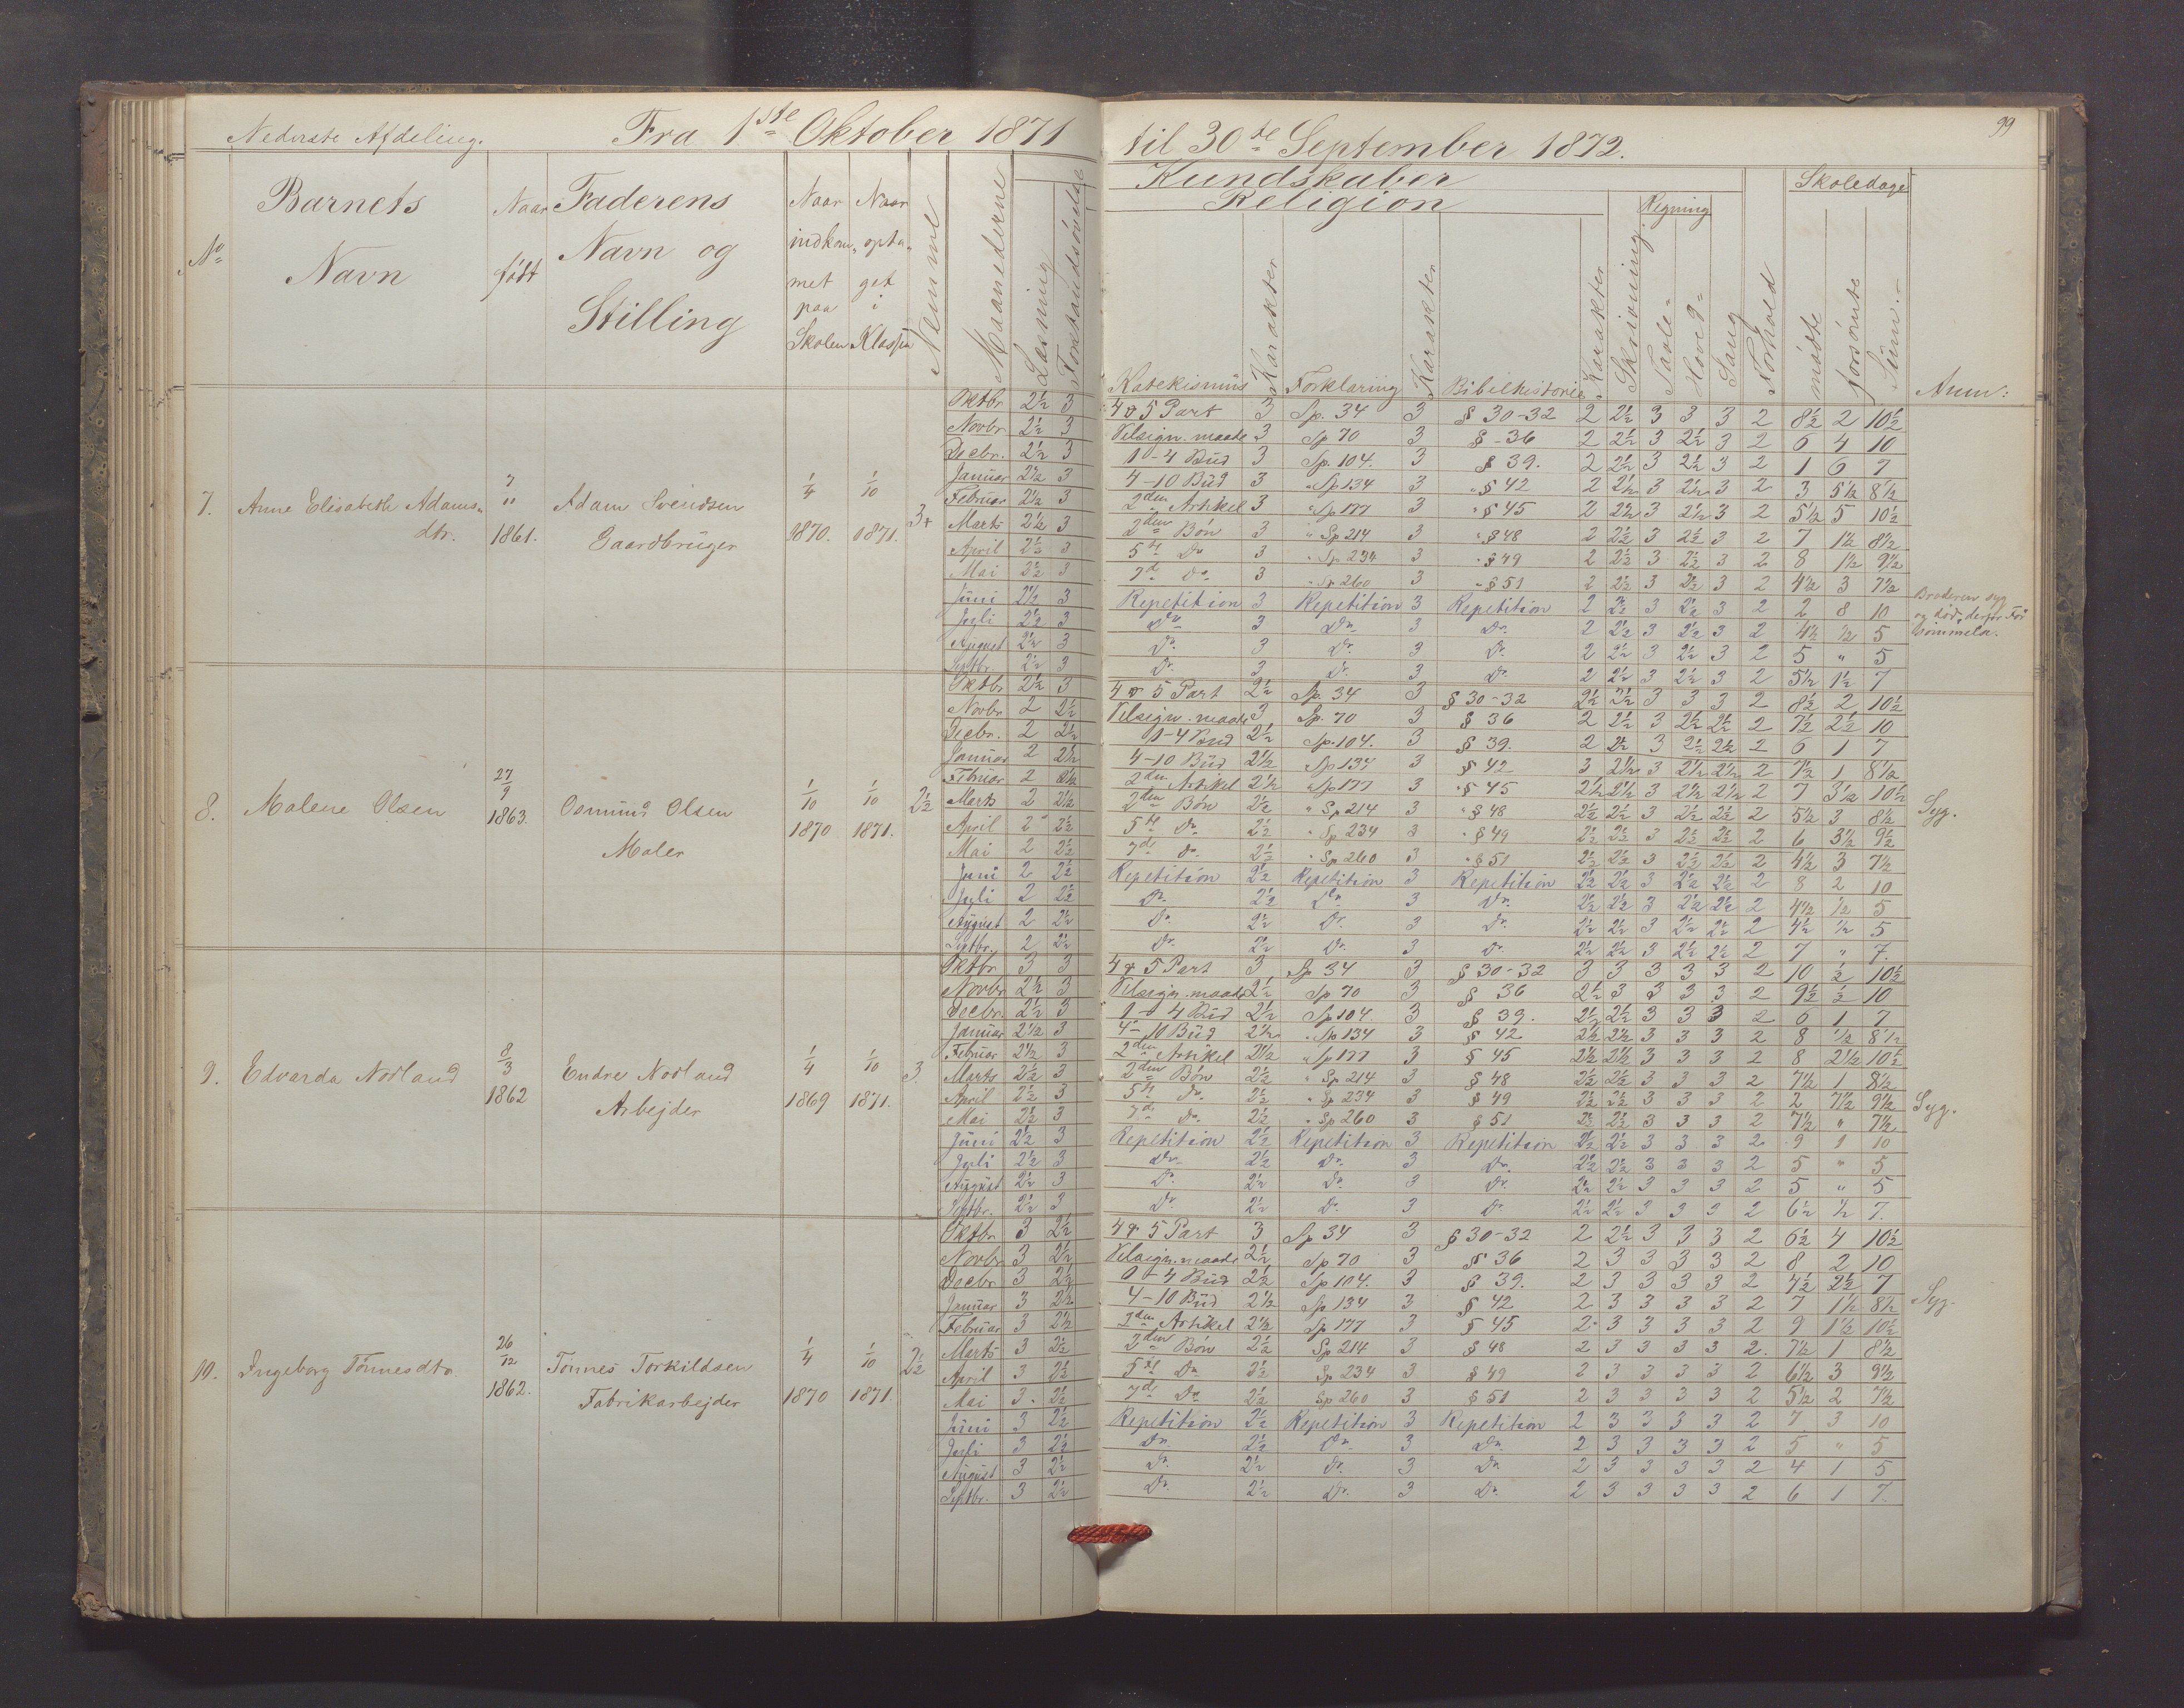 Nederste Afdeling. Fra 1ste Oktober 1871 til 30te September 1872. 99
No Barnets Navn Naar født Faderens Navn og Stilling Naar indkommet paa Skolen Naar optaget i Klassen Nemme Maanederne Læsning Forstandsøvelse
Kundskaber Skoledage
Religion Regning
Katekismus Karakter Forklaring Karakter Bibelhistorie Karakter Skrivning Tavle- Hoved- Sang Forhold mødte forsømte Sum. Anm:
7. Anne Elisabeth Adamsdtr. 7/11 1861. Adam Svendsen Gaardbruger 1/4 1870. 1/10 1871. 3+
Oktbr 2½ 3 4 & 5 Part 3 Sp. 34 3 § 30-32 2 2½ 3 3 3 2 8½ 2 10½
Novbr 2½ 3 Velsign. maade 3 Sp 70 3 § -36 2 2½ 3 2½ 3 2 6 4 10
Decbr. 2½ 3 1-4 Bud 3 Sp. 104. 3 § 39. 2 2½ 3 2½ 3 2 1 6 7
Januar 2½ 3 4-10 Bud 3 " Sp 134 3 " § 42 2 2½ 3 2½ 3 2 3 5½ 8½
Februar 2½ 3 2den Artikel 3 " Sp 177 3 " § 45 2 2½ 3 2½ 3 2 5½ 5 10½
Marts 2½ 3 2den Bøn 3 " Sp 214 3 " § 48 2 2½ 3 2½ 3 2 7 1½ 8½
April 2½ 3 5te Do 3 " Sp. 234 3 " § 49 2 2½ 3 2½ 3 2 8 1½ 9½
Mai 2½ 3 7de Do. 3 " Sp 260 3 " § 51 2 2½ 3 2½ 3 2 4½ 3 7½
Juni 2½ 3 Repetition 3 Repetition 3 Repetition 2 2½ 3 2½ 3 2 2 8 10 Broderen syg og død, derfor Forsømmelse.
Juli 2½ 3 Do 3 Do. 3 Do. 2 2½ 3 2½ 3 2 4½ ½ 5
August 2½ 3 Do. 3 Do. 3 Do. 2 2½ 3 2½ 3 2 5 " 5
Septbr. 2½ 3 Do. 3 Do. 3 Do. 2 2½ 3 2½ 3 2 5½ 1½ 7
8. Malene Olsen 27/9 1863. Osmund Olsen Maler 1/10 1870 1/10 1871. 2½
Oktbr 2½ 3 4 & 5 Part 2½ Sp. 34 3 § 30-32 2½ 2½ 3 3 3 2 8½ 2 10½
Novbr 2 2½ Velsign. maade 3 Sp. 70 3 § 36 2 2½ 3 2½ 2½ 2 7½ 2½ 10
Decbr. 2 2½ 1-4 Bud 2½ Sp. 104. 3 § 39. 2 2½ 3 2½ 2½ 2 6 1 7
Januar 2 2½ 4-10 Bud 2½ Sp 134 3 § 42 3 2½ 3 2½ 2½ 2 7½ 1 8½
Februar 2 2½ 2den Artikel 2½ " Sp 177 3 " § 45 2½ 2½ 3 2½ 2½ 2 7 3½ 10½
Marts 2 2½ 2den Bøn 2½ " Sp 214 3 " § 48 2½ 2½ 3 2½ 2½ 2 5½ 3 8½ Syg.
April 2 2½ 5te Do. 2½ " Sp 234 3 " § 49 2½ 2½ 3 2½ 2½ 2 6 3½ 9½
Mai 2 2½ 7de Do. 2½ " Sp 260 3 " § 51 2½ 2½ 3 2½ 2½ 2 4½ 3 7½
Juni 2 2½ Repetition 2½ Repetition 3 Repetition 2½ 2½ 3 2½ 2½ 2 8 2 10
Juli 2 2½ Do. 2½ Do. 3 Do. 2½ 2½ 3 2½ 2½ 2 4½ ½ 5
August 2 2½ Do. 2½ Do. 3 Do. 2½ 2½ 3 2½ 2½ 2 4½ ½ 5
Septbr. 2 2½ Do. 2½ Do. 3 Do. 2½ 2½ 3 2½ 2½ 2 7 " 7.
9. Edvarda Nodland 8/3 1862 Endre Nodland Arbejder 1/4 1869 1/10 1871. 3.
Oktbr 3 3 4 & 5 Part 3 Sp 34 3 § 30-32 3 3 3 3 3 2 10 ½ 10½
Novbr 2½ 3 Velsign. maade 2½ Sp 70 3 § 36 2½ 3 3 3 3 2 9½ ½ 10
Decbr. 2½ 3 1-4 Bud 2½ Sp 104. 3 § 39. 2½ 2½ 3 3 3 2 6 1 7
Januar 2½ 3 4-10 Bud 2½ " Sp 134 3 § 42 2½ 2½ 3 3 3 2 8 ½ 8½
Februar 2½ 3 2den Artikel 2½ " Sp 177 3 § 45 2½ 2½ 3 3 3 2 8 2½ 10½
Marts 2½ 3 2den Bøn 2½ " Sp 214 3 § 48 2½ 2½ 3 3 3 2 7½ 1 8½
April 2½ 3 5te Do. 2½ " Sp 234 3 § 49 2½ 2½ 3 3 3 2 2 7½ 9½ Syg.
Mai 2½ 3 7de Do. 2½ " Sp 260 3 § 51 2½ 2½ 3 3 3 2 7½ " 7½
Juni 2½ 3 Repetition 2½ Repetition 3 Repetition 2½ 2½ 3 3 3 2 9 1 10
Juli 2½ 3 Do. 2½ Do. 3 Do. 2½ 2½ 3 3 3 2 5 " 5
August 2½ 3 Do. 2½ Do. 3 Do. 2½ 2½ 3 3 3 2 5 " 5
Septbr. 2½ 3 Do. 2½ Do. 3 Do. 2½ 2½ 3 3 3 2 6½ ½ 7.
10. Ingeborg Tønnesdtr. 26/12 1862. Tønnes Torkildsen Fabrikarbejder 1/4 1870 1/10 1871. 2½
Oktbr 3 2½ 4 & 5 Part 3 Sp 34 3 § 30-32 2 2½ 3 3 3 2 6½ 4 10½
Novbr 3 2½ Velsign. maade 2½ Sp 70 3 § 36 2 3 3 3 3 2 8 2 10
Decbr 3 2½ 1-4 Bud 2½ Sp 104. 3 § 39. 2 3 3 3 3 2 4½ 2½ 7
Januar 3 2½ 4-10 Bud 2½ Sp 134 3 § 42 2 3 3 3 3 2 7 1½ 8½ Syg.
Februar 3 2½ 2den Artikel 2½ Sp 177 3 § 45 2 3 3 3 3 2 9 1½ 10½
Marts 3 2½ 2den Bøn 2½ Sp 214 3 § 48 2 3 3 3 3 2. 7½ 1 8½
April 3 2½ 5te Do 2½ Sp. 234 3 § 49 2 3 3 3 3 2 6½ 3 9½
Mai 3. 2½ 7de Do 2½ Sp 260 3 § 51 2 3 3 3 3 2 5½ 2 7½
Juni 3 2½ Repetition 2½ Repetition 3 Repetition 2 3 3 3 3 2 7 3 10
Juli 3 2½ Do. 2½ Do. 3 Do. 2 3 3 3 3 2 5 " 5
August 3 2½ Do. 2½ Do. 3 Do. 2 3 3 3 3 2 4 1 5
Septbr. 3 2½ Do. 2½ Do. 3 Do. 2 3 3 3 3 2 6 1 7.